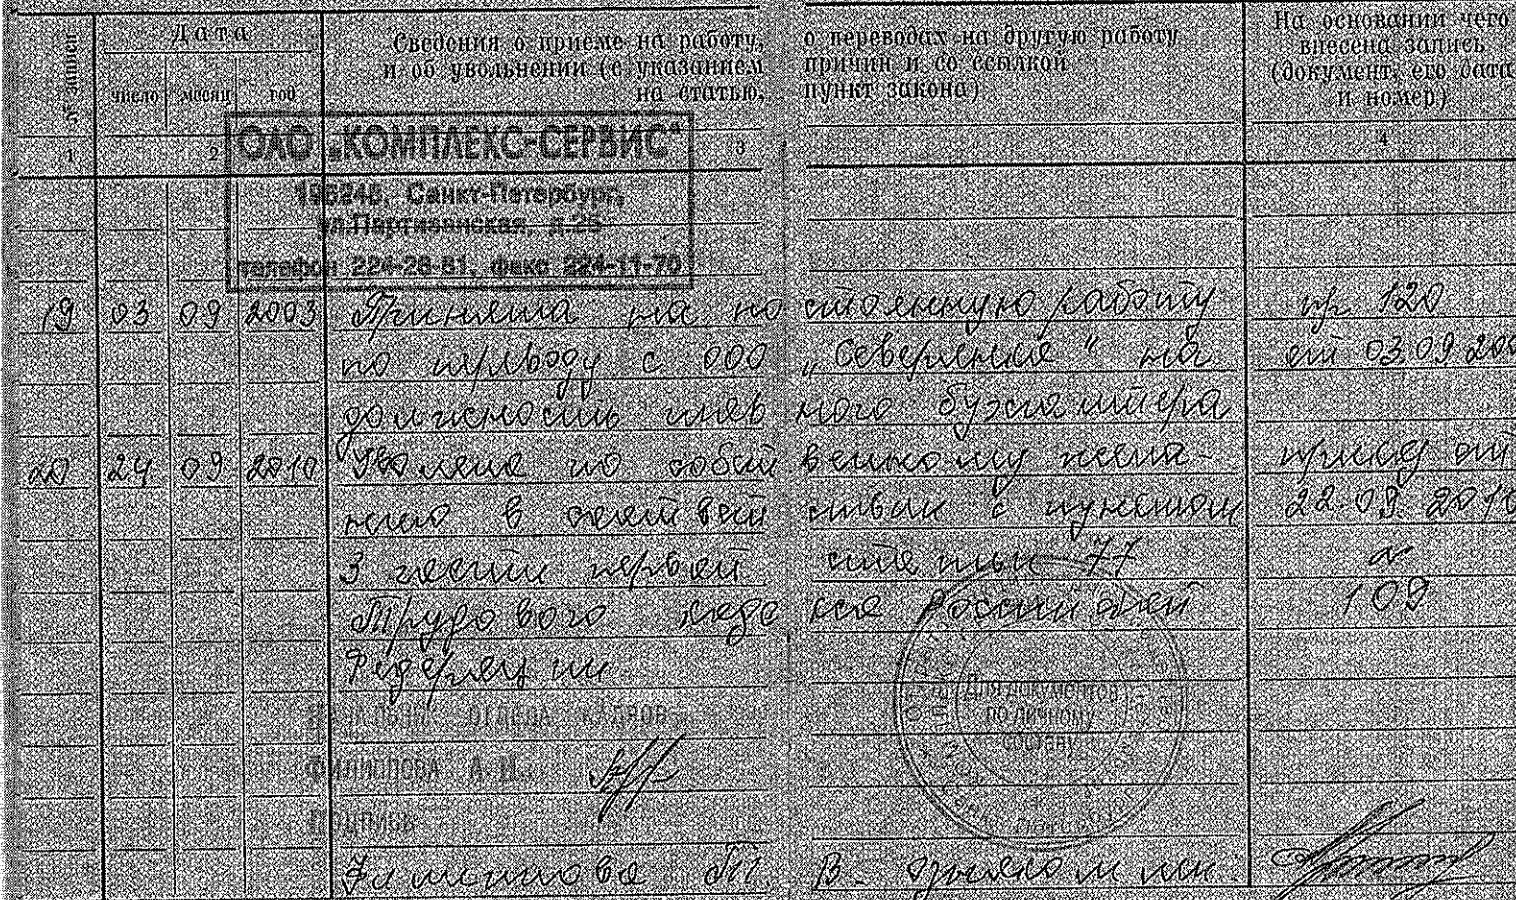 № записи
Дата
число месяц год
Сведения о приеме на работу, о переводах на другую работу
и об увольнении (с указанием причин и со ссылкой
на статью, пункт закона)
На основании чего
внесена запись
(документ, его дата
и номер)
1 2 3 4
ОАО „КОМПЛЕКС-СЕРВИС“
Санкт-Петербург,
ул.Партизанская, д.25
телефон 224-28-81, факс 224-11-70
19 03 09 2003 Принята на постоянную работу пр 120
по переводу с ООО „Северянка“ на от 03.09.200
должность главного бухгалтера
20 24 09 2010 Уволена по собственному жела- приказ от
нию в соответствии с пунктом 22.09.2010
3 части первой статьи 77 №
Трудового кодекса Российской 109
Федерации
НАЧАЛЬНИК ОТДЕЛА КАДРОВ
ФИЛИППОВА А.
Для документов
по личному
составу
ПОДПИСЬ
В.